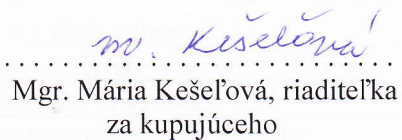 m. Kešeľová
........................................
Mgr. Mária Kešeľová, riaditeľka
za kupujúceho